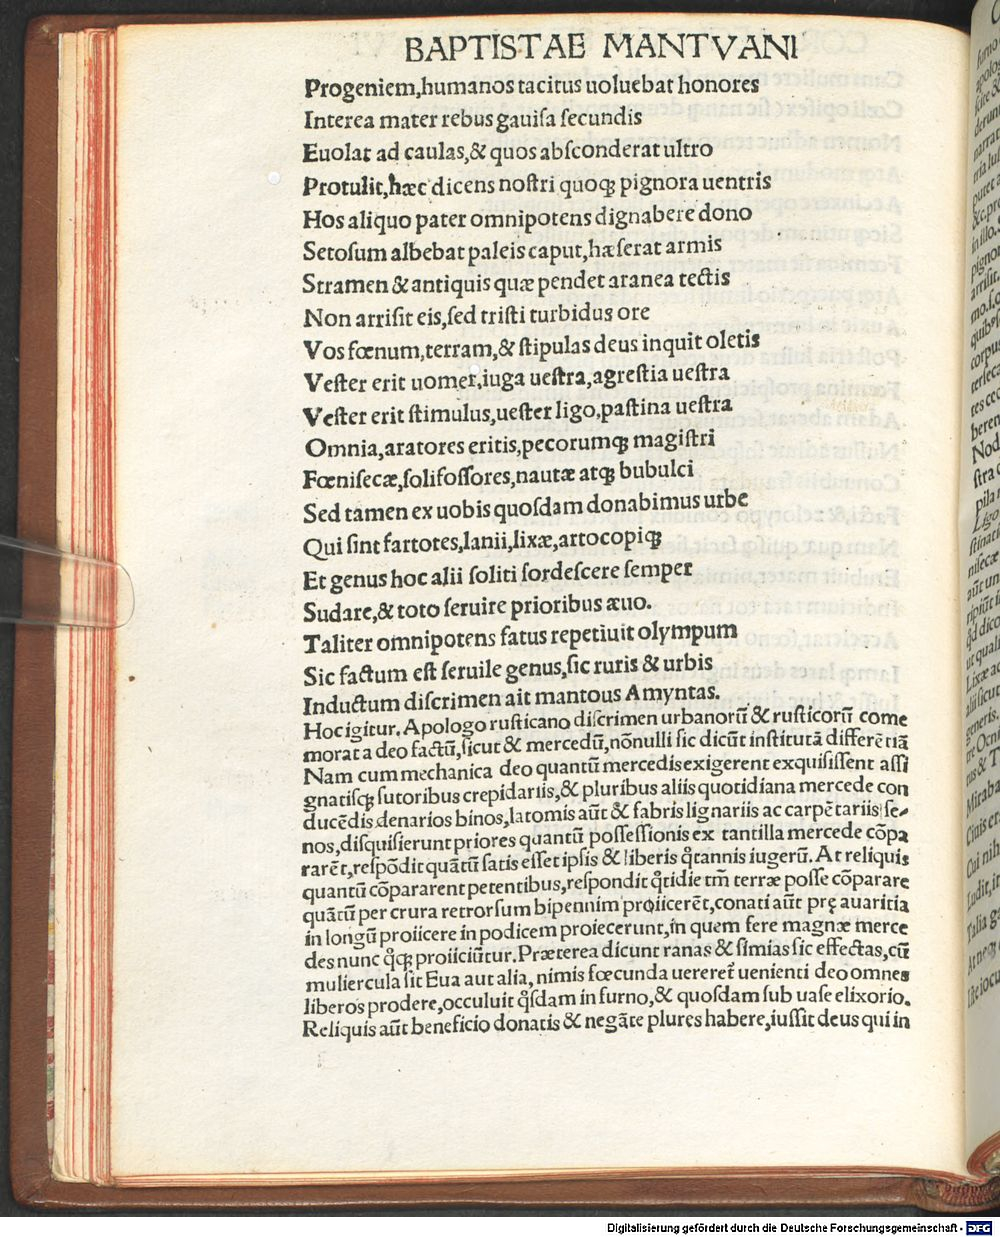 BAPTISTAE MANTVANI
Progeniem,humanos tacitus uoluebat honores
Interea mater rebus gauiſa ſecundis
Euolat ad caulas,& quos abſconderat ultro
Protulit,hæc dicens noſtri quoqꝫ pignora uentris
Hos aliquo pater omnipotens dignabere dono
Setoſum albebat paleis caput,hæſerat armis
Stramen & antiquis quæ pendet aranea tectis
Non arriſit eis,ſed triſti turbidus ore
Vos fœnum,terram,& ſtipulas deus inquit oletis
Veſter erit uomer,iuga ueſtra,agreſtia ueſtra
Veſter erit ſtimulus,ueſter ligo,paſtina ueſtra
Omnia,aratores eritis,pecorumqꝫ magiſtri
Fœniſecæ,ſolifoſſores,nautæ atqꝫ bubulci
Sed tamen ex uobis quoſdam donabimus urbe
Qui ſint fartotes,lanii,lixæ,artocopiqꝫ
Et genus hoc alii ſoliti ſordeſcere ſemper
Sudare,& toto ſeruire prioribus æuo.
Taliter omnipotens fatus repetiuit olympum
Sic factum eſt ſeruile genus,ſic ruris & urbis
Inductum diſcrimen ait mantous Amyntas.
Hoc igitur. Apologo ruſticano diſcrimen urbanorū & ruſticorū come
morat a deo factū,ſicut & mercedū,nōnulli ſic dicūt inſtitutā differētiā
Nam cum mechanica deo quantū mercedis exigerent exquiſiſſent aſſi
gnatiſqꝫ ſutoribus crepidariis,& pluribus aliis quotidiana mercede con
ducēdis denarios binos,latomis aūt & fabris lignariis ac carpētariis ſe-
nos,diſquiſierunt priores quantū poſſeſſionis ex tantilla mercede cōpa
rarēt,reſpōdit quātū ſatis eſſet ipſis & liberis q̊tannis iugerū. At reliquis
quantū cōpararent petentibus,reſpondit q̊tidie tm̄ terræ poſſe cōparare
quātū per crura retrorſum bipennim proiicerēt,conati aūt prę auaritia
in longū proiicere in podicem proiecerunt,in quem fere magnæ merce
des nunc q̊qꝫ proiiciūtur. Præterea dicunt ranas & ſimias ſic effectas,cū
muliercula ſit Eua aut alia, nimis fœcunda uereret̄ uenienti deo omnes
liberos prodere,occuluit q̊ſdam in furno,& quoſdam ſub uaſe elixorio.
Reliquis aūt beneficio donatis & negāte plures habere,iuſſit deus qui in
Digitalisierung gefördert durch die Deutsche Forschungsgemeinschaft - DFG